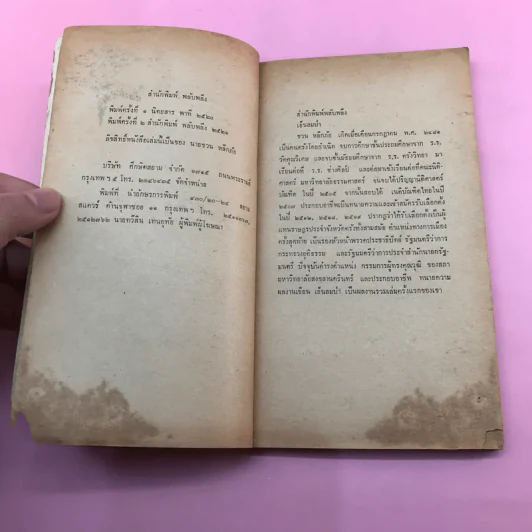 สำนักพิมพ์ พลับพลึง
พิมพ์ครั้งที่ ๑ นิตยสาร พาที ๒๕๒๐
พิมพ์ครั้งที่ ๒ สำนักพิมพ์ พลับพลึง ๒๕๒๑
ลิขสิทธิ์หนังสือเล่มนี้เป็นของ นายชวน หลีกภัย
บริษัท ศึกษิตสยาม จำกัด ๑๗๑๕ ถนนพระราม๔
กรุงเทพฯ ๕ โทร. จัดจำหน่าย
พิมพ์ที่ การพิมพ์
กรุงเทพฯ โทร.
ผู้พิมพ์ผู้โฆษณา
สำนักพิมพ์พลับพลึง
เย็นลมป่า
ชวน หลีกภัย เกิดเมื่อเดือนกรกฎาคม พ.ศ. ๒๔๘๑
เป็นคนตรังโดยกำเนิด จบการศึกษาชั้นประถมศึกษาจาก ร.ร.
วัดควนวิเศษ และจบชั้นมัธยมศึกษาจาก ร.ร. ตรังวิทยา มา
เรียนต่อที่ ร.ร. ช่างศิลป์ และต่อมาเข้าเรียนต่อที่คณะนิติ-
ศาสตร์ มหาวิทยาลัยธรรมศาสตร์ จนได้ปริญญานิติศาสตร์
บัณฑิต ในปี ๒๕๐๕ จากนั้นสอบได้ เนติบัณฑิตไทยในปี
๒๕๐๗ ประกอบอาชีพเป็นทนายความและเข้าสมัครรับเลือกตั้ง
ในปี ๒๕๑๒, ๒๕๑๘, ๒๕๑๙ ปรากฏว่าได้รับเลือกตั้งเป็นผู้
แทนราษฎรประจำจังหวัดตรังทั้งสามสมัย ตำแหน่งทางการเมือง
ครั้งสุดท้าย เป็นรองหัวหน้าพรรคประชาธิปัตย์ รัฐมนตรีว่าการ
กระทรวงยุติธรรม และรัฐมนตรีว่าการประจำสำนักนายกรัฐ-
มนตรี ปัจจุบันดำรงตำแหน่ง กรรมการผู้ทรงคุณวุฒิ ของสภา
มหาวิทยาลัยสงขลานครินทร์ และประกอบอาชีพ ทนายความ
ผลงานเขียน เย็นลมป่า เป็นผลงานรวมเล่มครั้งแรกของเขา